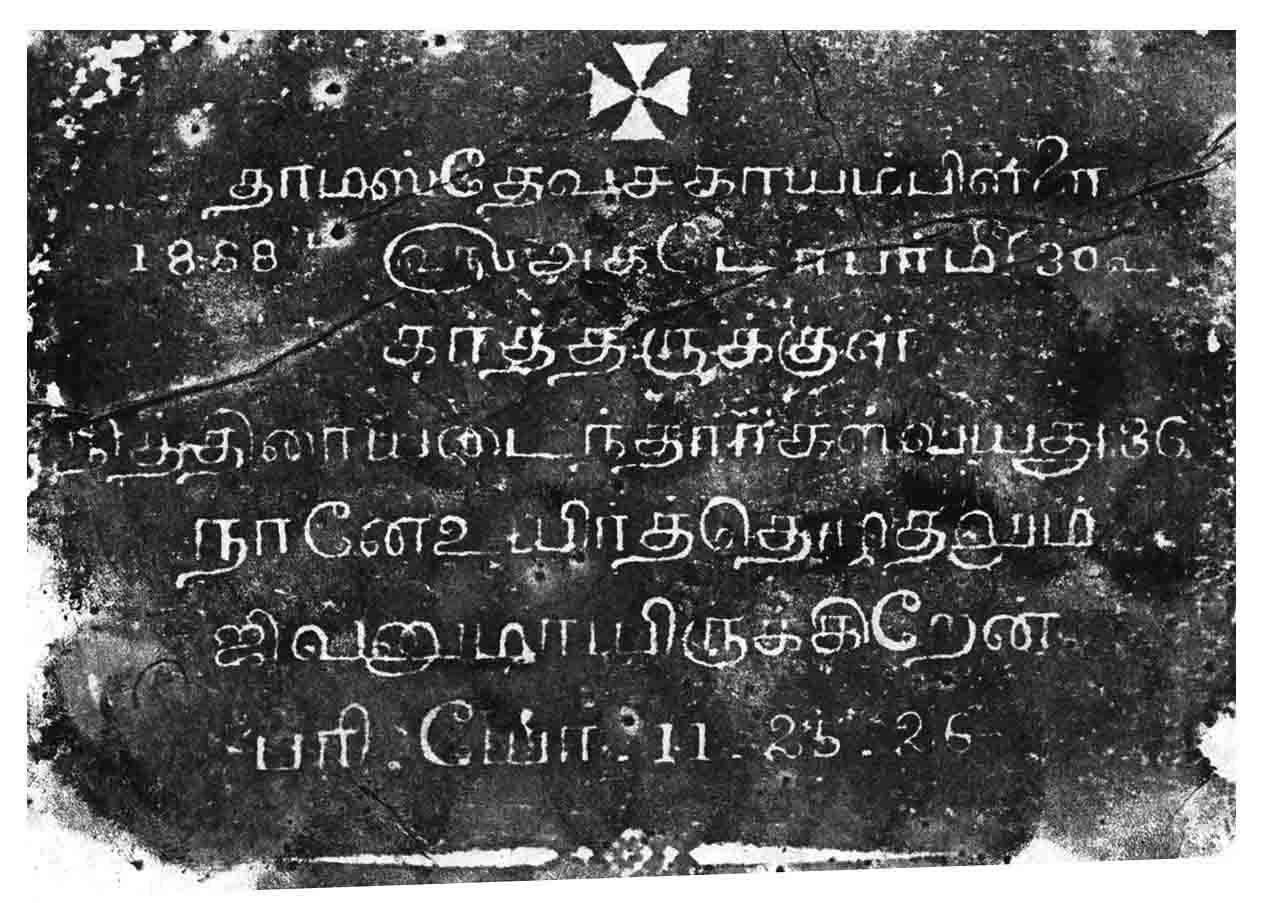 தாமஸ்தேவசகாயம்பிள்ளை
1868 ௵ அகடோபர்மீ 30௳
கர்த்தருக்குள்
நித்திரையடைந்தார்கள்வயது 36
நானேஉயிர்த்தெழுதலும்
ஜிவனுமாயிருக்கிறேன
பரி . யோ . 11 . 25 . 26